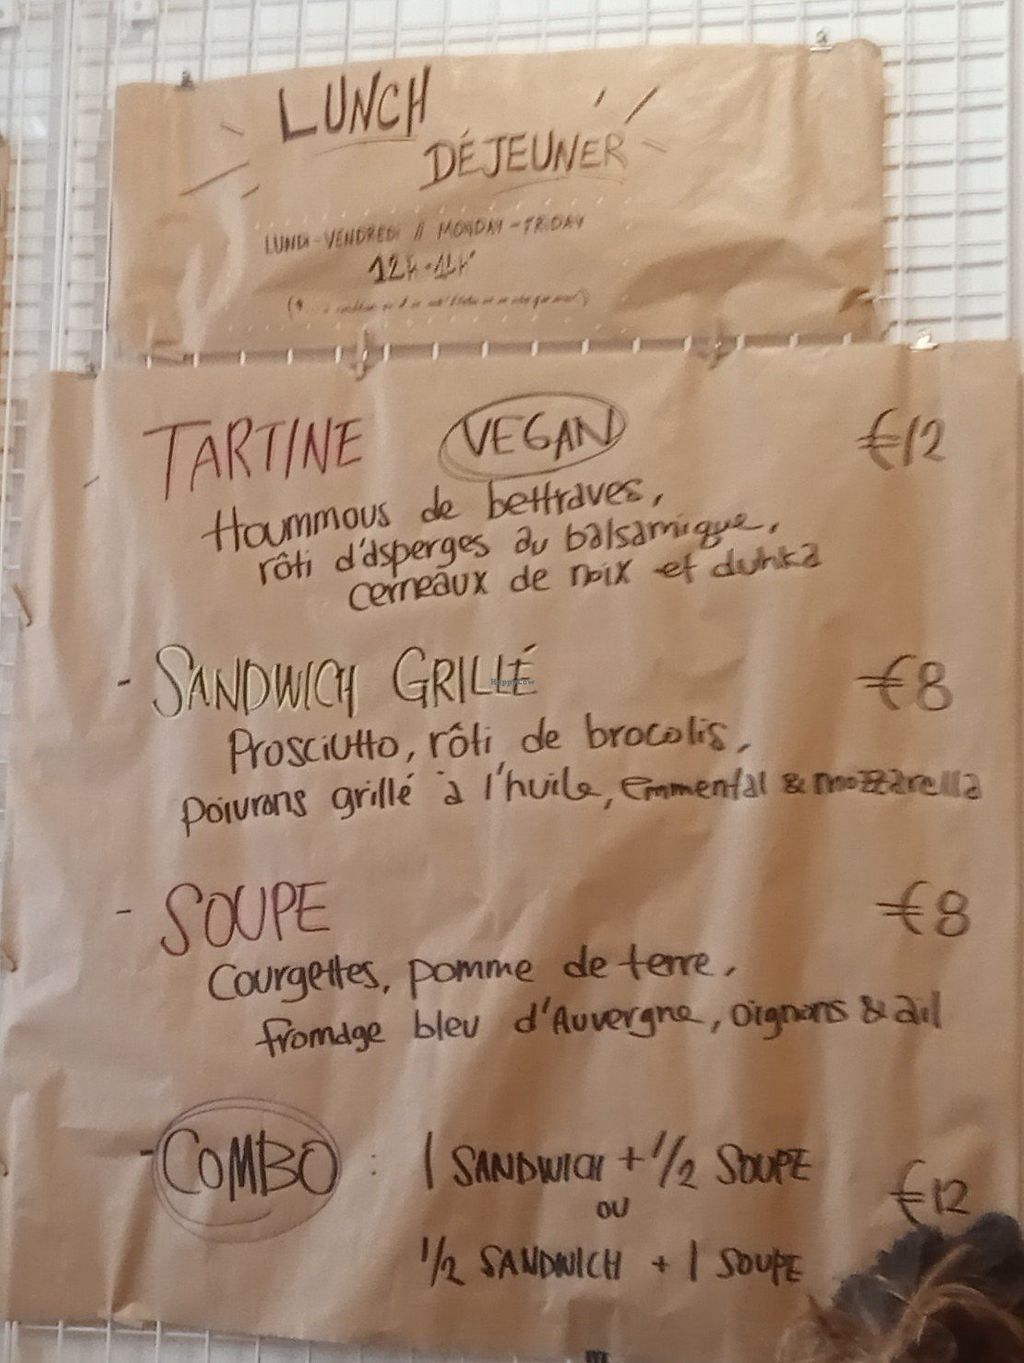 LUNCH
DÉJEUNER
LUNDI-VENDREDI // MONDAY-FRIDAY
TARTINE VEGAN €12
Hoummous de bettraves,
rôti d'asperges au balsamique,
cerneaux de noix et duhka
- SANDWICH GRILLÉ €8
Prosciutto, rôti de brocolis,
poivrons grillé à l'huile, emmental & mozzarella
- SOUPE €8
Courgettes, pomme de terre,
fromage bleu d'Auvergne, oignons & ail
- COMBO : 1 SANDWICH + 1/2 SOUPE €12
ou
1/2 SANDWICH + 1 SOUPE